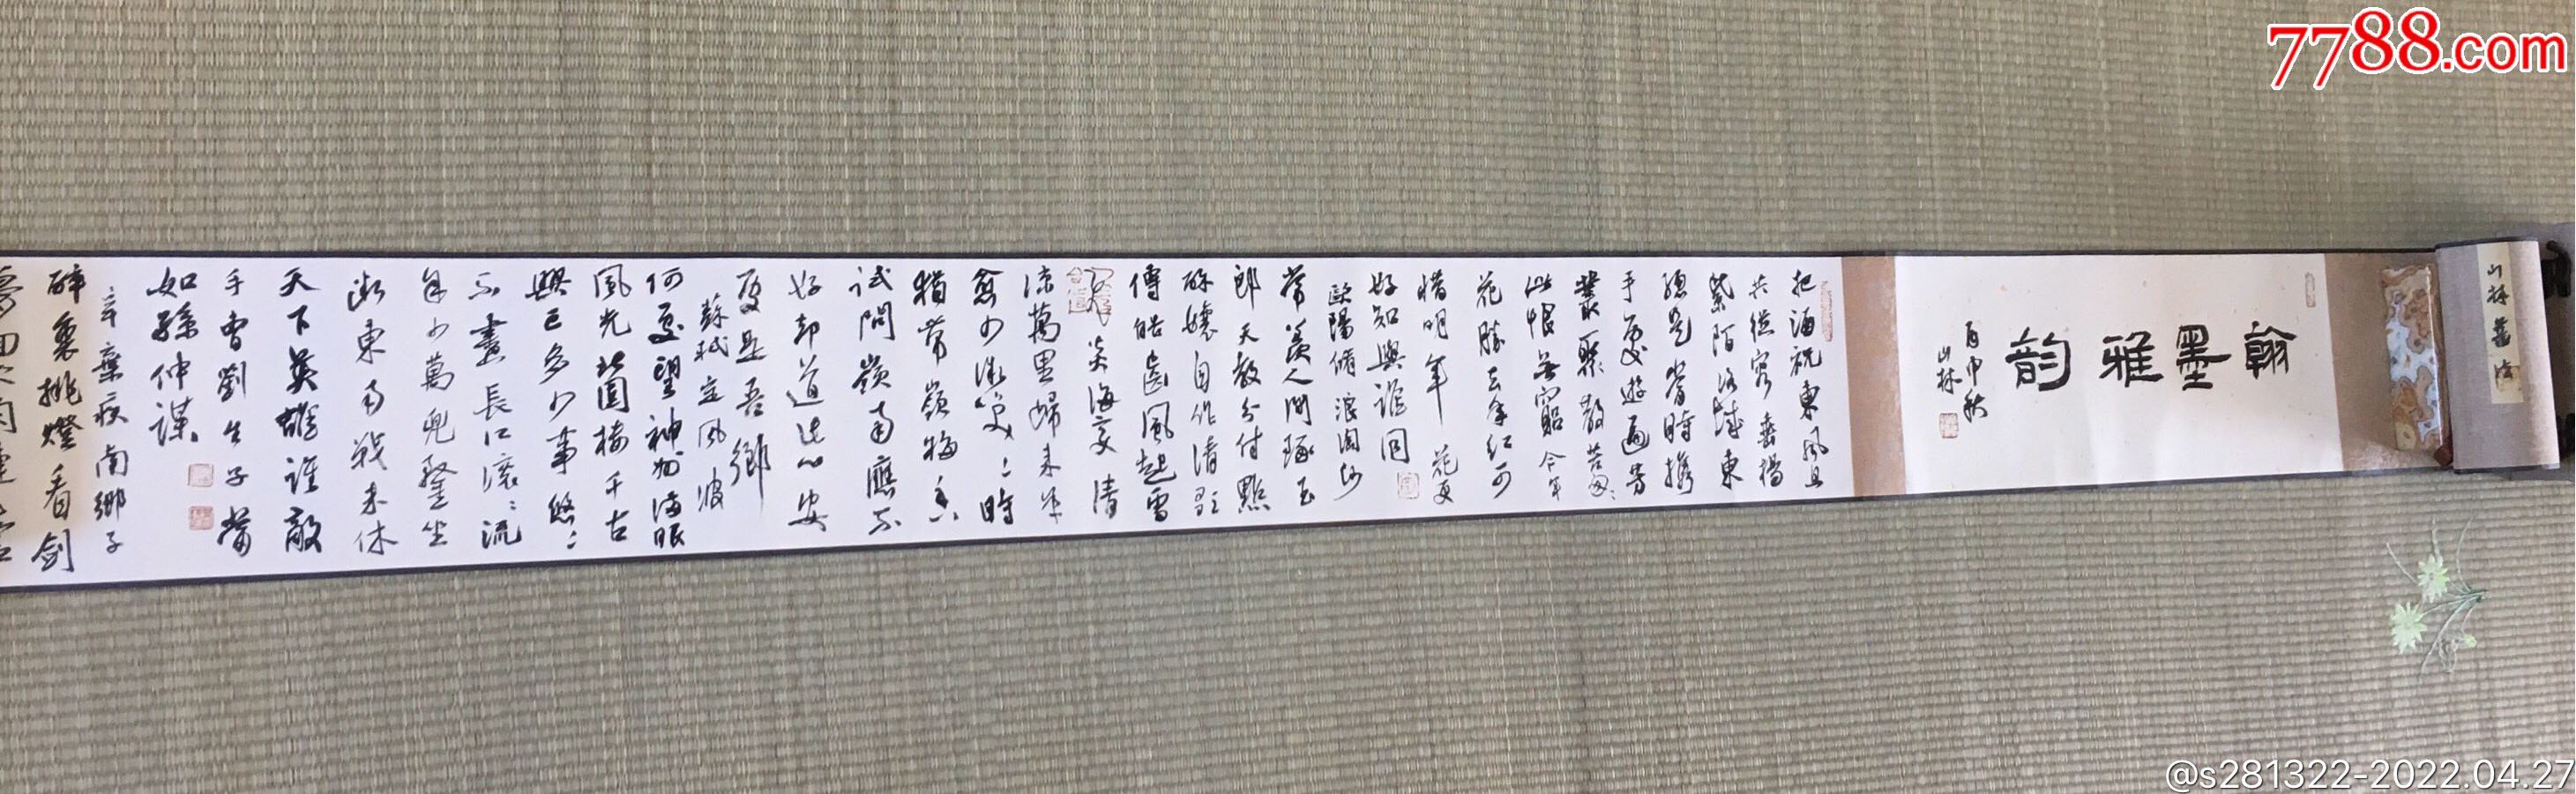 7788.com
翰墨雅韵
山林
把酒祝東風且
共從容垂楊
紫陌洛城東
總是當時攜
手處遊遍芳
叢聚散苦匆〻
此恨無窮今年
花勝去年紅可
惜明年花更
好知與誰同
歐陽脩浪淘沙
常羨人間琢玉
郎天教分付點
酥孃自作清歌
傳皓齒風起雪
飛炎海變清
涼萬里歸來年
愈少微笑〻時
猶帶嶺梅香
試問嶺南應不
好却道此心安
處是吾鄉
蘇軾定風波
何處望神州滿眼
風光北固樓千古
興亡多少事悠〻
不盡長江滾〻流
年少萬兜鍪坐
斷東南戰未休
天下英雄誰敵
手曹劉生子當
如孫仲謀
辛棄疾南鄉子
醉裏挑燈看劍
夢回吹角連營
@s281322-2022.04.27